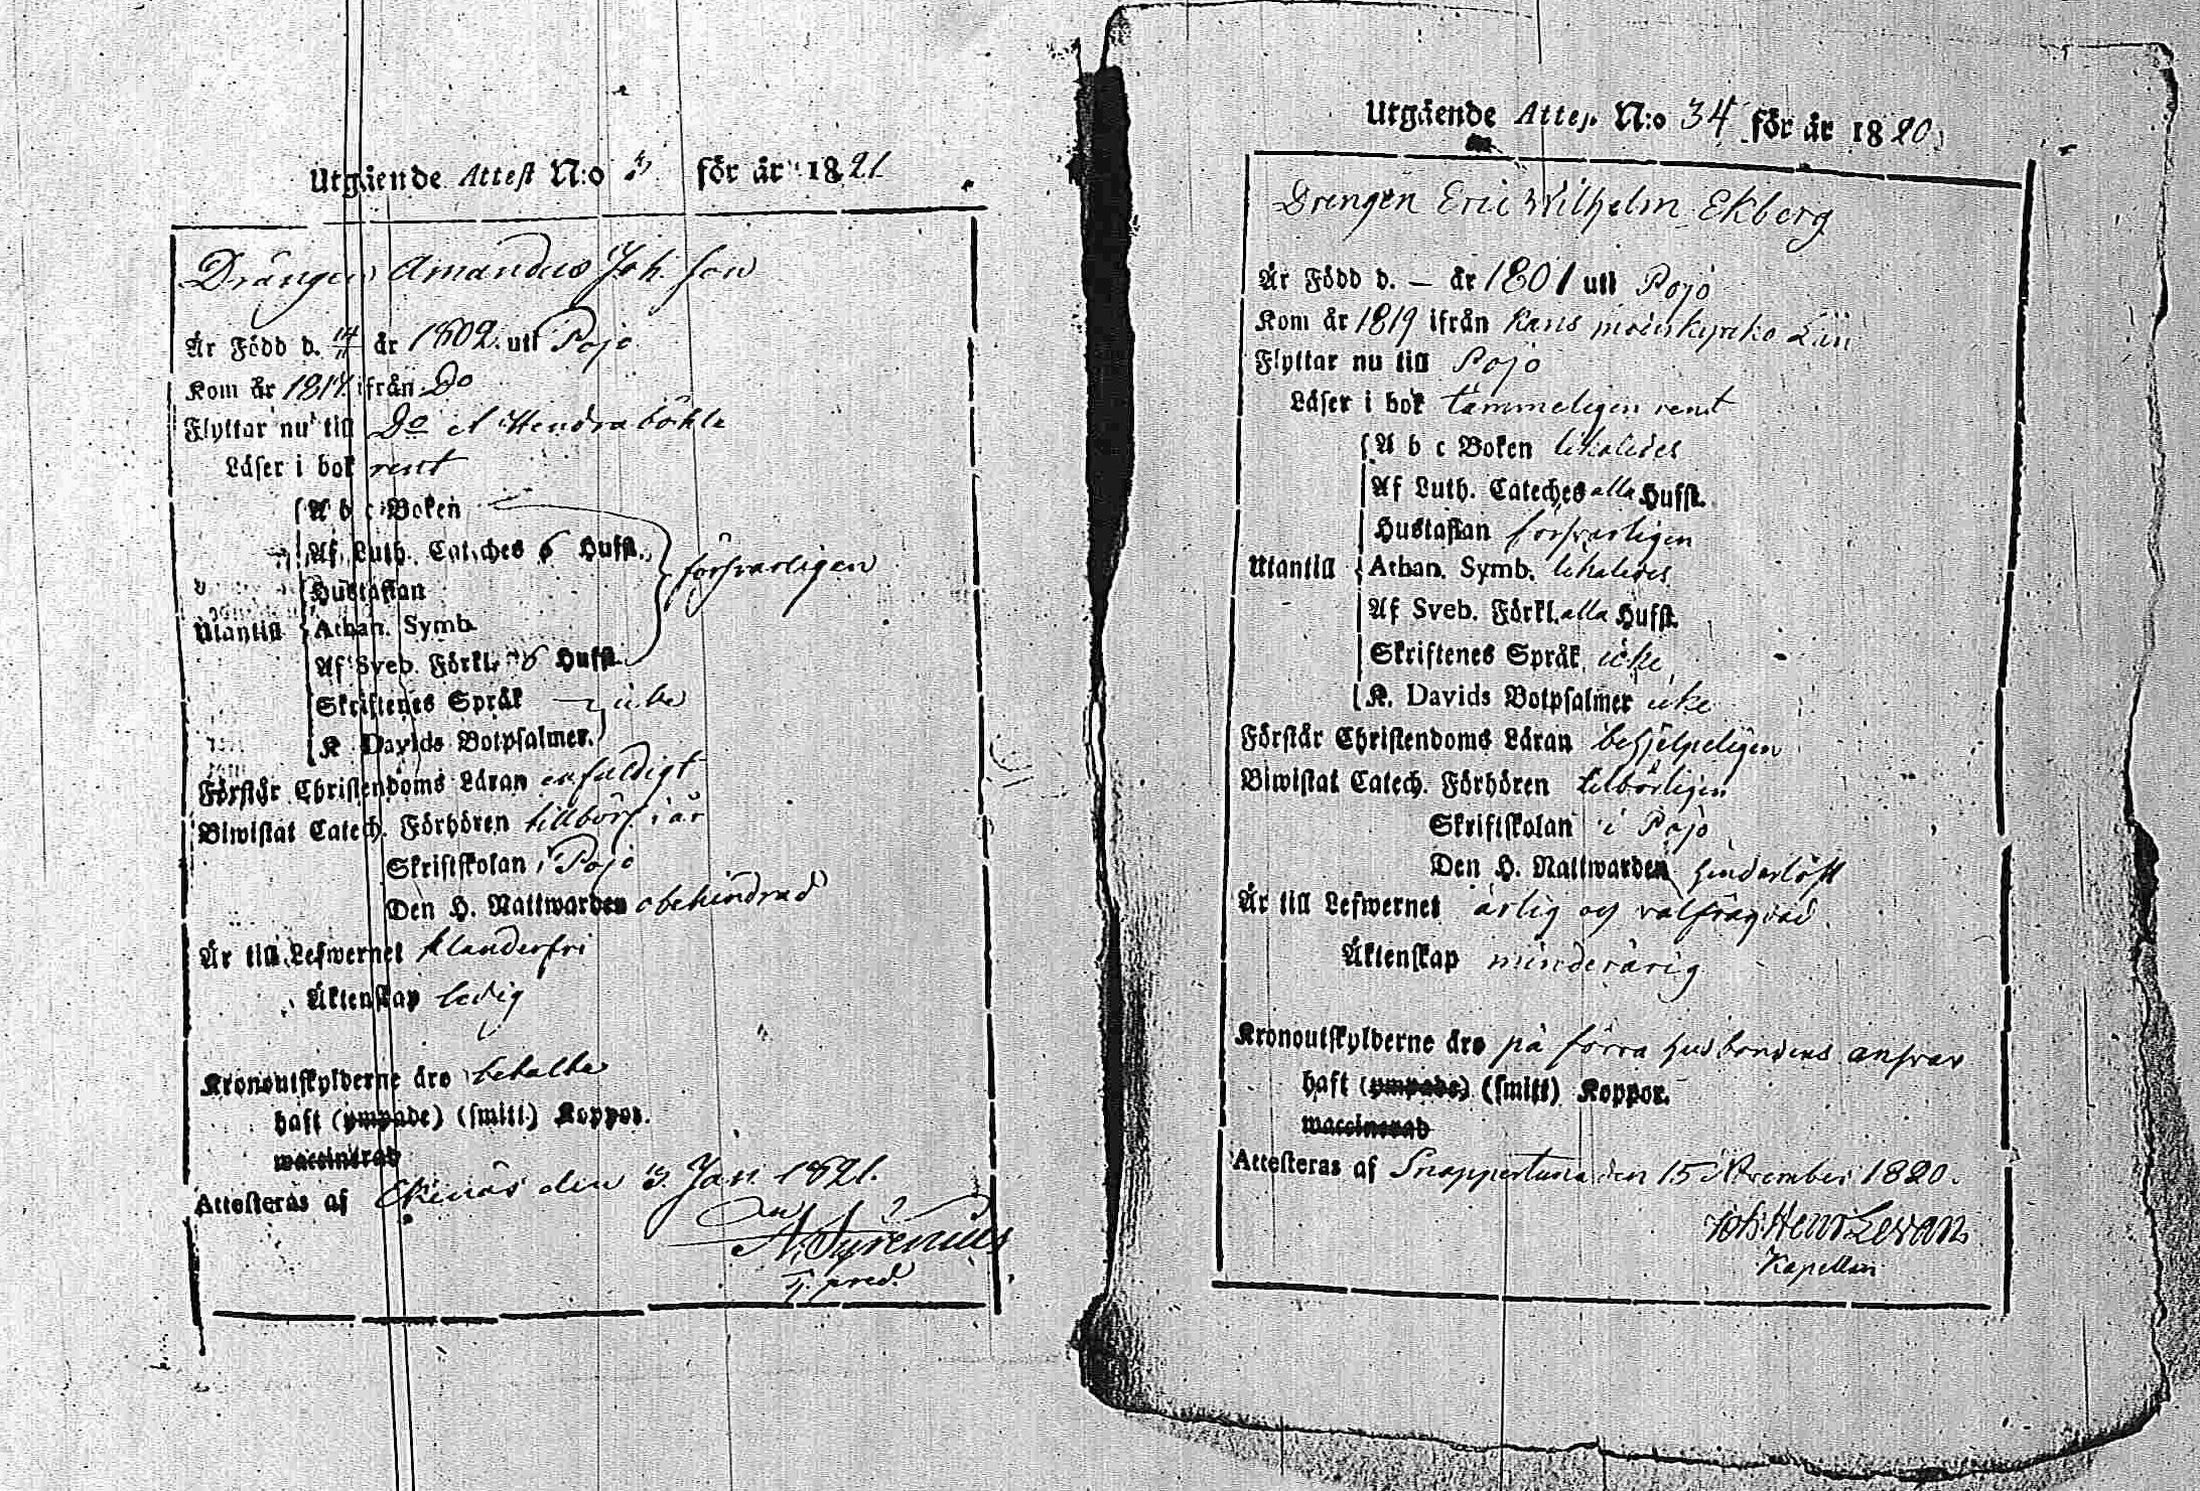 Utgående Attest N:o 3 för år 1821
Drängen Amandus Joh. son
Är Född d. 14/11 år 1802 uti Pojo
Kom år 1817 ifrån Do
Flyttar nu till Do
Läser i bok rent
A b c Boken
Af Luth. Cateches 6 Hufst.
försvarligen
Hustaflan
Utantill
Athan. Symb.
Af Sveb. Förkl. 6 Hufst.
Skriftenes Språk icke
K. Davids Botpsalmer.
Förstår Christendoms Läran enfaldigt
Biwistat Catech. Förhören tillbörl. i år
Skriftskolan i Pojo
Den H. Nattwarden obehindrad
Är till Lefwernet klanderfri
Äktenskap ledig
Kronoutskylderne äro betalta
haft (ympade) (smitt.) Koppor.
waccinerad
Attesteras af Ekenäs den 3 Jan. 1821.
A. Syrenius
Utgående Attest. N:o 34 för år 1820
Drengen Eric Wilhelm Ekberg
Är Född d. — år 1801 uti Pojo
Kom år 1819 ifrån
Flyttar nu till Pojo
Läser i bok tämmeligen rent
A b c Boken likaledes
Af Luth. Cateches alla Hufst.
Hustaflan försvarligen
Utantill Athan. Symb. likaledes
Af Sveb. Förkl. alla Hufst.
Skriftenes Språk icke
K. Davids Botpsalmer icke
Förstår Christendoms Läran behjelpeligen
Biwistat Catech. Förhören tilbörligen
Skriftskolan i Pojo
Den H. Nattwarden hinderlöst
Är till Lefwernet ärlig och välfrägdad
Äktenskap minderårig
Kronoutskylderne äro på förra husbondens ansvar
haft (ympade) (smitt) Koppor.
waccinerad
Attesteras af Snappertuna den 15 November 1820.
Joh: Henr Levan
Kapellan